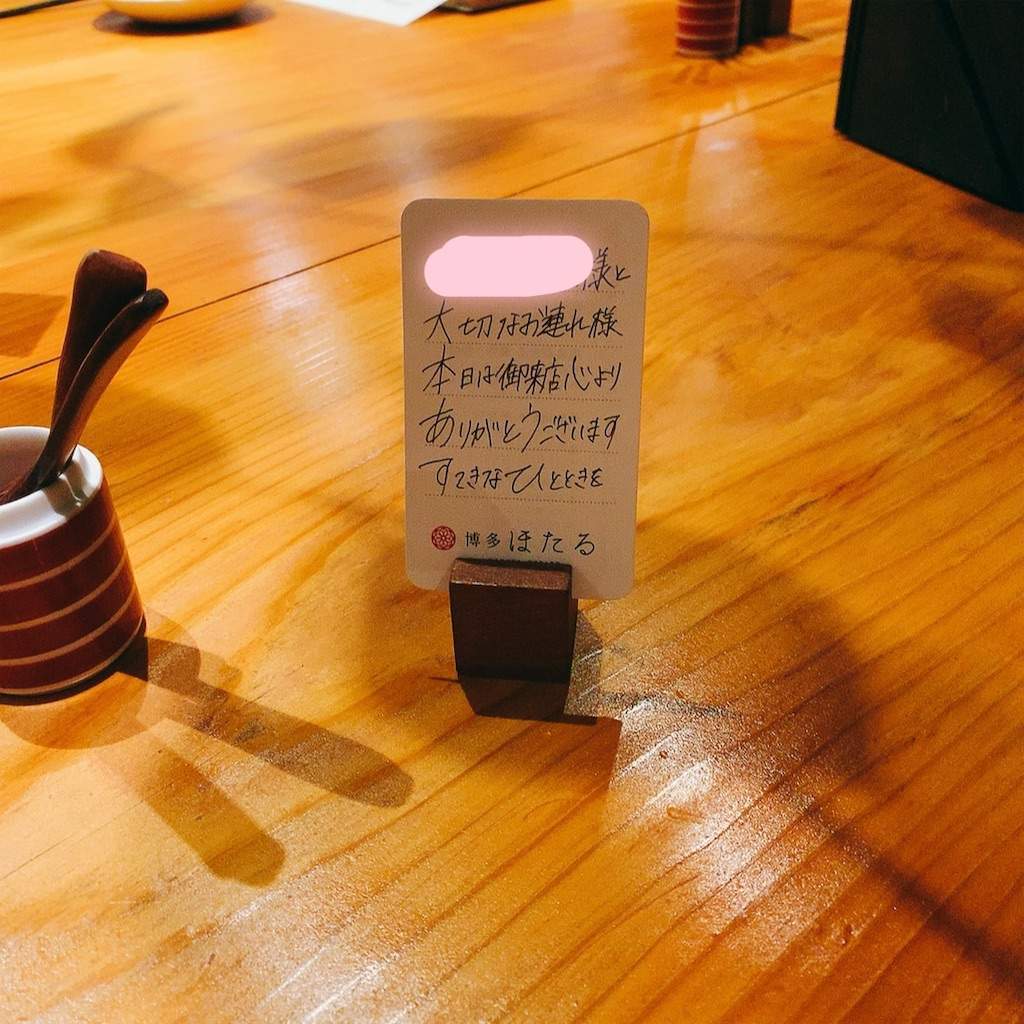 様と
大切なお連れ様
本日は御来店心より
ありがとうございます
すてきなひとときを
博多 ほたる